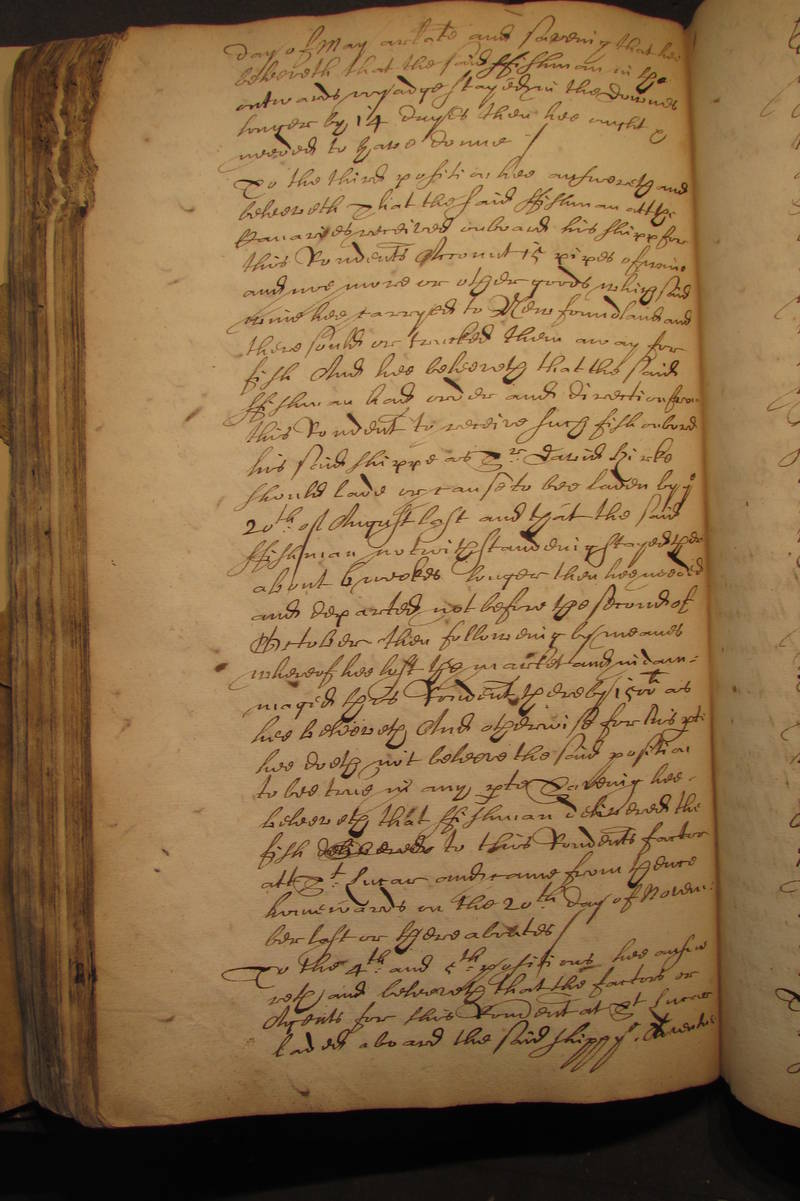 day of May arlate and saveing that hee
beleeveth that the said ffishman in the
outwards voyadge stayed in the Downes
longer by 14 dayes then hee ought &
needed to have donne /
To the third position hee answereth and
beleeveth That the said ffishman att the
Canaries received onboard his shipp for
this Rondents Accomt 15 pipes of wine
and noe more or other goods which said
wine hee carryed to Newfoundland and
there sould or trucked them away for
fish And hee beleeveth that the said
ffishman had order and direction from
this Rondent to receive such fish onbord
his said shippe as Sr. David Kirke
should lade or cause to bee laden by ye
20th of August last and that the said
ffishman notwithstanding stayed there
about 6 weekes longer then hee needed
and departed not before the second of
October then following by meanes
whereof hee lost the market and indam=
maged this Rondent thereby 1500li as
hee beleeveth And otherwise for his pte
hee doeth not beleeve the said position
to bee true in any pte Saveing hee
beleeveth that ffishman delivered the
fish to this Rondents factor
att St. Lucar and came from thence
homewards on the 20th day of Novem=
ber last or thereaboutes /
To the 4th. and 5th. positions hee answe
reth and beleeveth that the factors or
Agents for this Rondent at St Lucar
laded aboard the said shipp ye